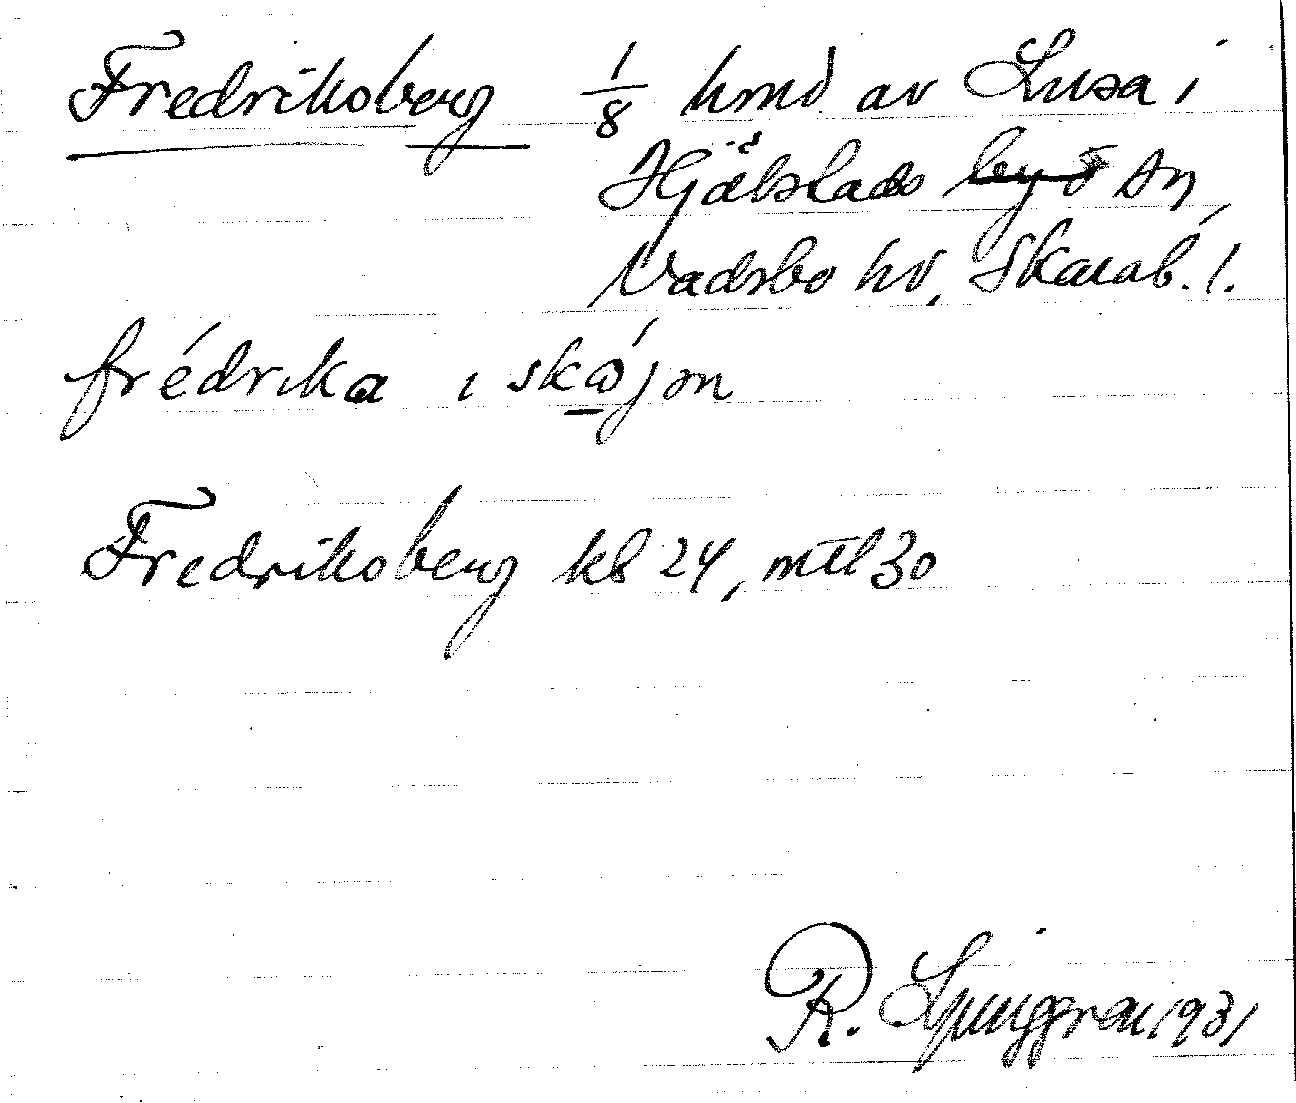 Fredriksberg 1/8 hmd av Lusa i
Hjälstads sn,
Vadsbo hd, Skarab. l.
frédrika i skójɔn
Fredriksberg kb 24, mtl 30
R. Ljunggren 1931